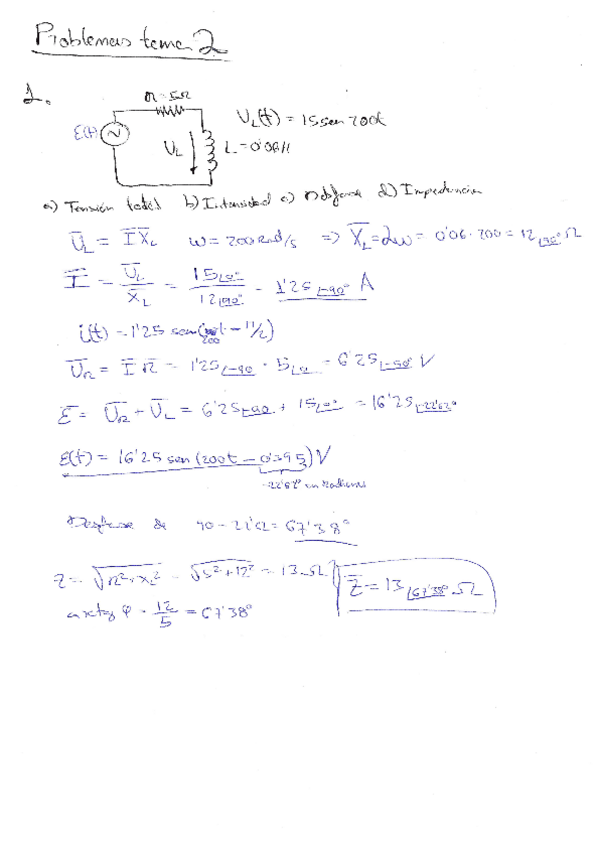 Problemas tema 2
1.
R = 5Ω
E(t)
U_L
L = 0'06H
U_L(t) = 15 sen 200t
a) Tensión total b) Intensidad c) Desfase d) Impedancia
U̅_L = I̅ X̅_L w = 200 rad/s => X̅_L = Lw = 0'06 · 200 = 12∠90° Ω
I̅ = U̅_L / X̅_L = 15∠0° / 12∠90° = 1'25∠-90° A
i(t) = 1'25 sen(200t - π/2)
U̅_R = I̅ R = 1'25∠-90 · 5∠0 = 6'25∠-90° V
E̅ = U̅_R + U̅_L = 6'25∠-90 + 15∠0° = 16'25∠-22'62°
E(t) = 16'25 sen (200t - 0'395) V
-22'62° en radianes
Desfase de 90 - 22'62 = 67'38°
Z = √(R² + X_L²) = √(5² + 12²) = 13 Ω
Z̅ = 13∠67'38° Ω
arctg φ = 12/5 = 67'38°